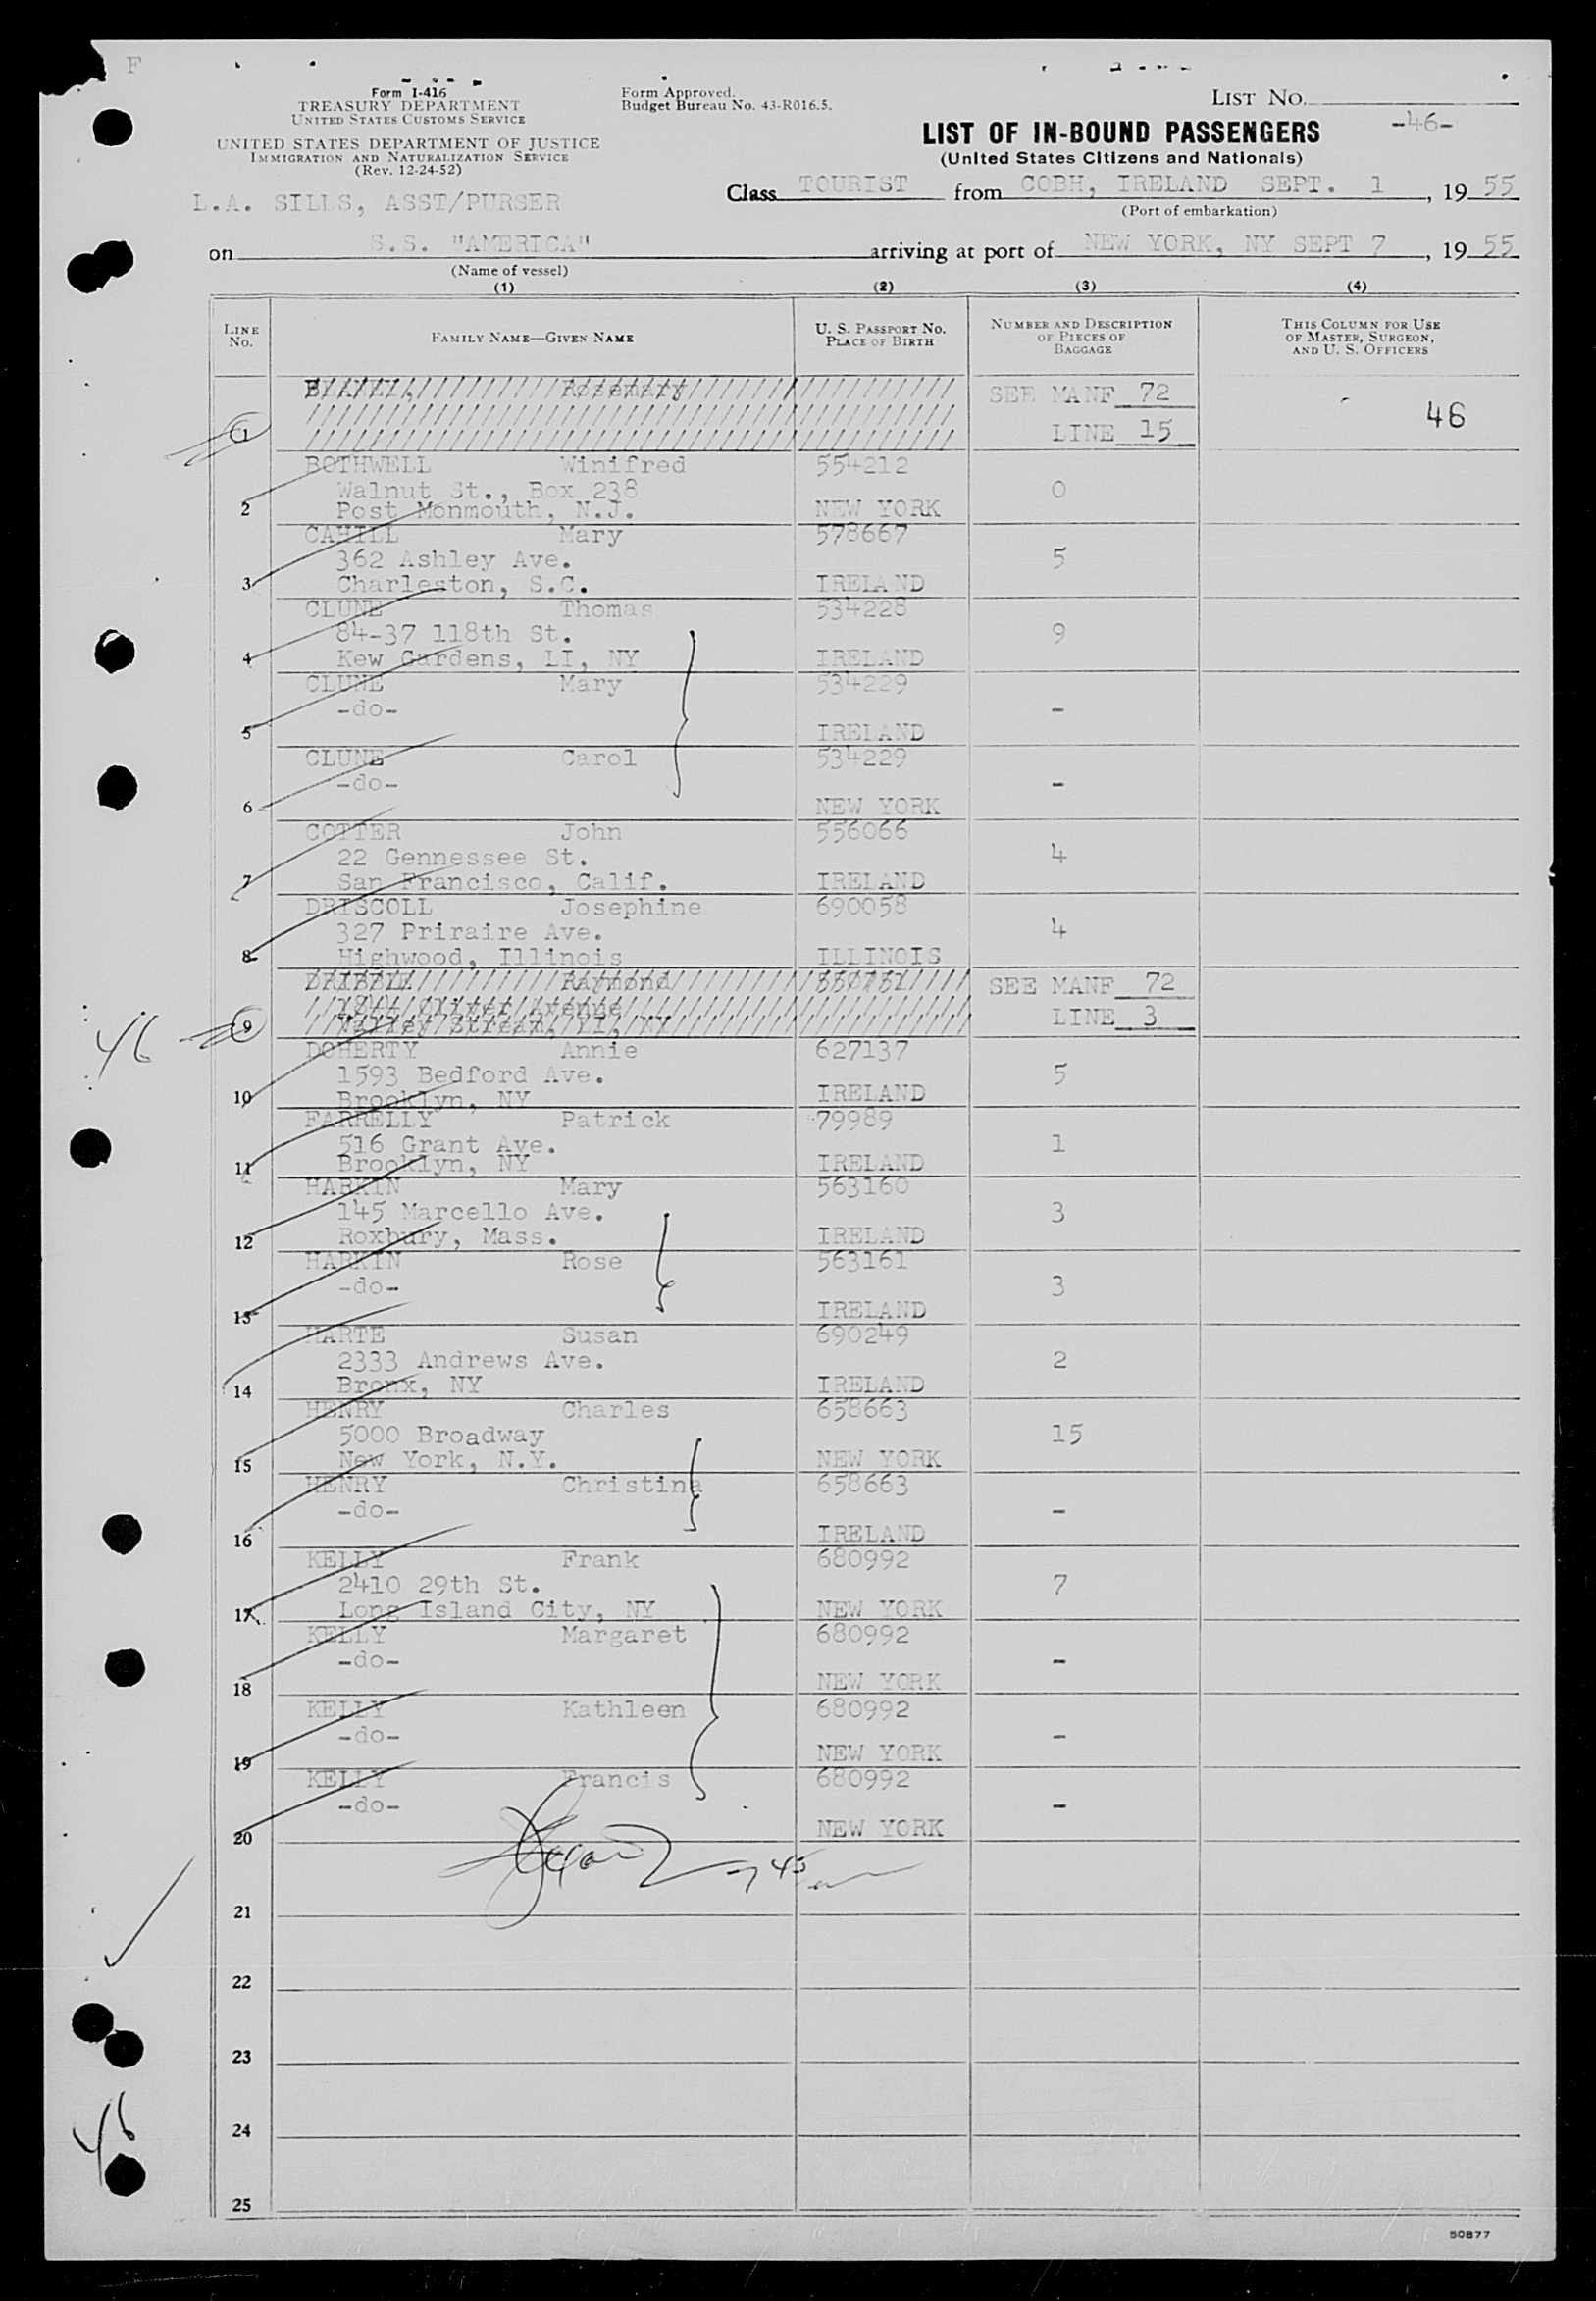 F
Form I-416
TREASURY DEPARTMENT
UNITED STATES CUSTOMS SERVICE
UNITED STATES DEPARTMENT OF JUSTICE
IMMIGRATION AND NATURALIZATION SERVICE
(Rev. 12-24-52)
Form Approved.
Budget Bureau No. 43-R016.5.
LIST NO.
-46-
LIST OF IN-BOUND PASSENGERS
(United States Citizens and Nationals)
L.A. SILLS, ASST/PURSER
Class TOURIST from COBH, IRELAND SEPT. 1, 1955
(Port of embarkation)
on S.S. "AMERICA" arriving at port of NEW YORK, NY SEPT 7, 1955
(Name of vessel)
(1) (2) (3) (4)
LINE NO. FAMILY NAME—GIVEN NAME U. S. PASSPORT NO. PLACE OF BIRTH NUMBER AND DESCRIPTION OF PIECES OF BAGGAGE THIS COLUMN FOR USE OF MASTER, SURGEON, AND U. S. OFFICERS
Rosemary SEE MANF 72
46
1 LINE 15
BOTHWELL Winifred 554212
Walnut St., Box 238 0
2 Post Monmouth, N.J. NEW YORK
CAHILL Mary 578667
362 Ashley Ave. 5
3 Charleston, S.C. IRELAND
CLUNE Thomas 534228
84-37 118th St. 9
4 Kew Gardens, LI, NY IRELAND
CLUNE Mary 534229
-do- -
5 IRELAND
CLUNE Carol 534229
-do- -
6 NEW YORK
COTTER John 556066
22 Gennessee St. 4
7 San Francisco, Calif. IRELAND
DRISCOLL Josephine 690058
327 Priraire Ave. 4
8 Highwood, Illinois ILLINOIS
Raymond SEE MANF 72
Avenue
46 9 Valley Stream, LI, NY LINE 3
DOHERTY Annie 627137
1593 Bedford Ave. 5
10 Brooklyn, NY IRELAND
FARRELLY Patrick 79989
516 Grant Ave. 1
11 Brooklyn, NY IRELAND
HARKIN Mary 563160
145 Marcello Ave. 3
12 Roxbury, Mass. IRELAND
HARKIN Rose 563161
-do- 3
13 IRELAND
HARTE Susan 690249
2333 Andrews Ave. 2
14 Bronx, NY IRELAND
HENRY Charles 658663
5000 Broadway 15
15 New York, N.Y. NEW YORK
HENRY Christina 658663
-do- -
16 IRELAND
KELLY Frank 680992
2410 29th St. 7
17 Long Island City, NY NEW YORK
KELLY Margaret 680992
-do- -
18 NEW YORK
KELLY Kathleen 680992
-do- -
19 NEW YORK
KELLY Francis 680992
-do- -
20 NEW YORK
21
22
23
24
46
25
50877